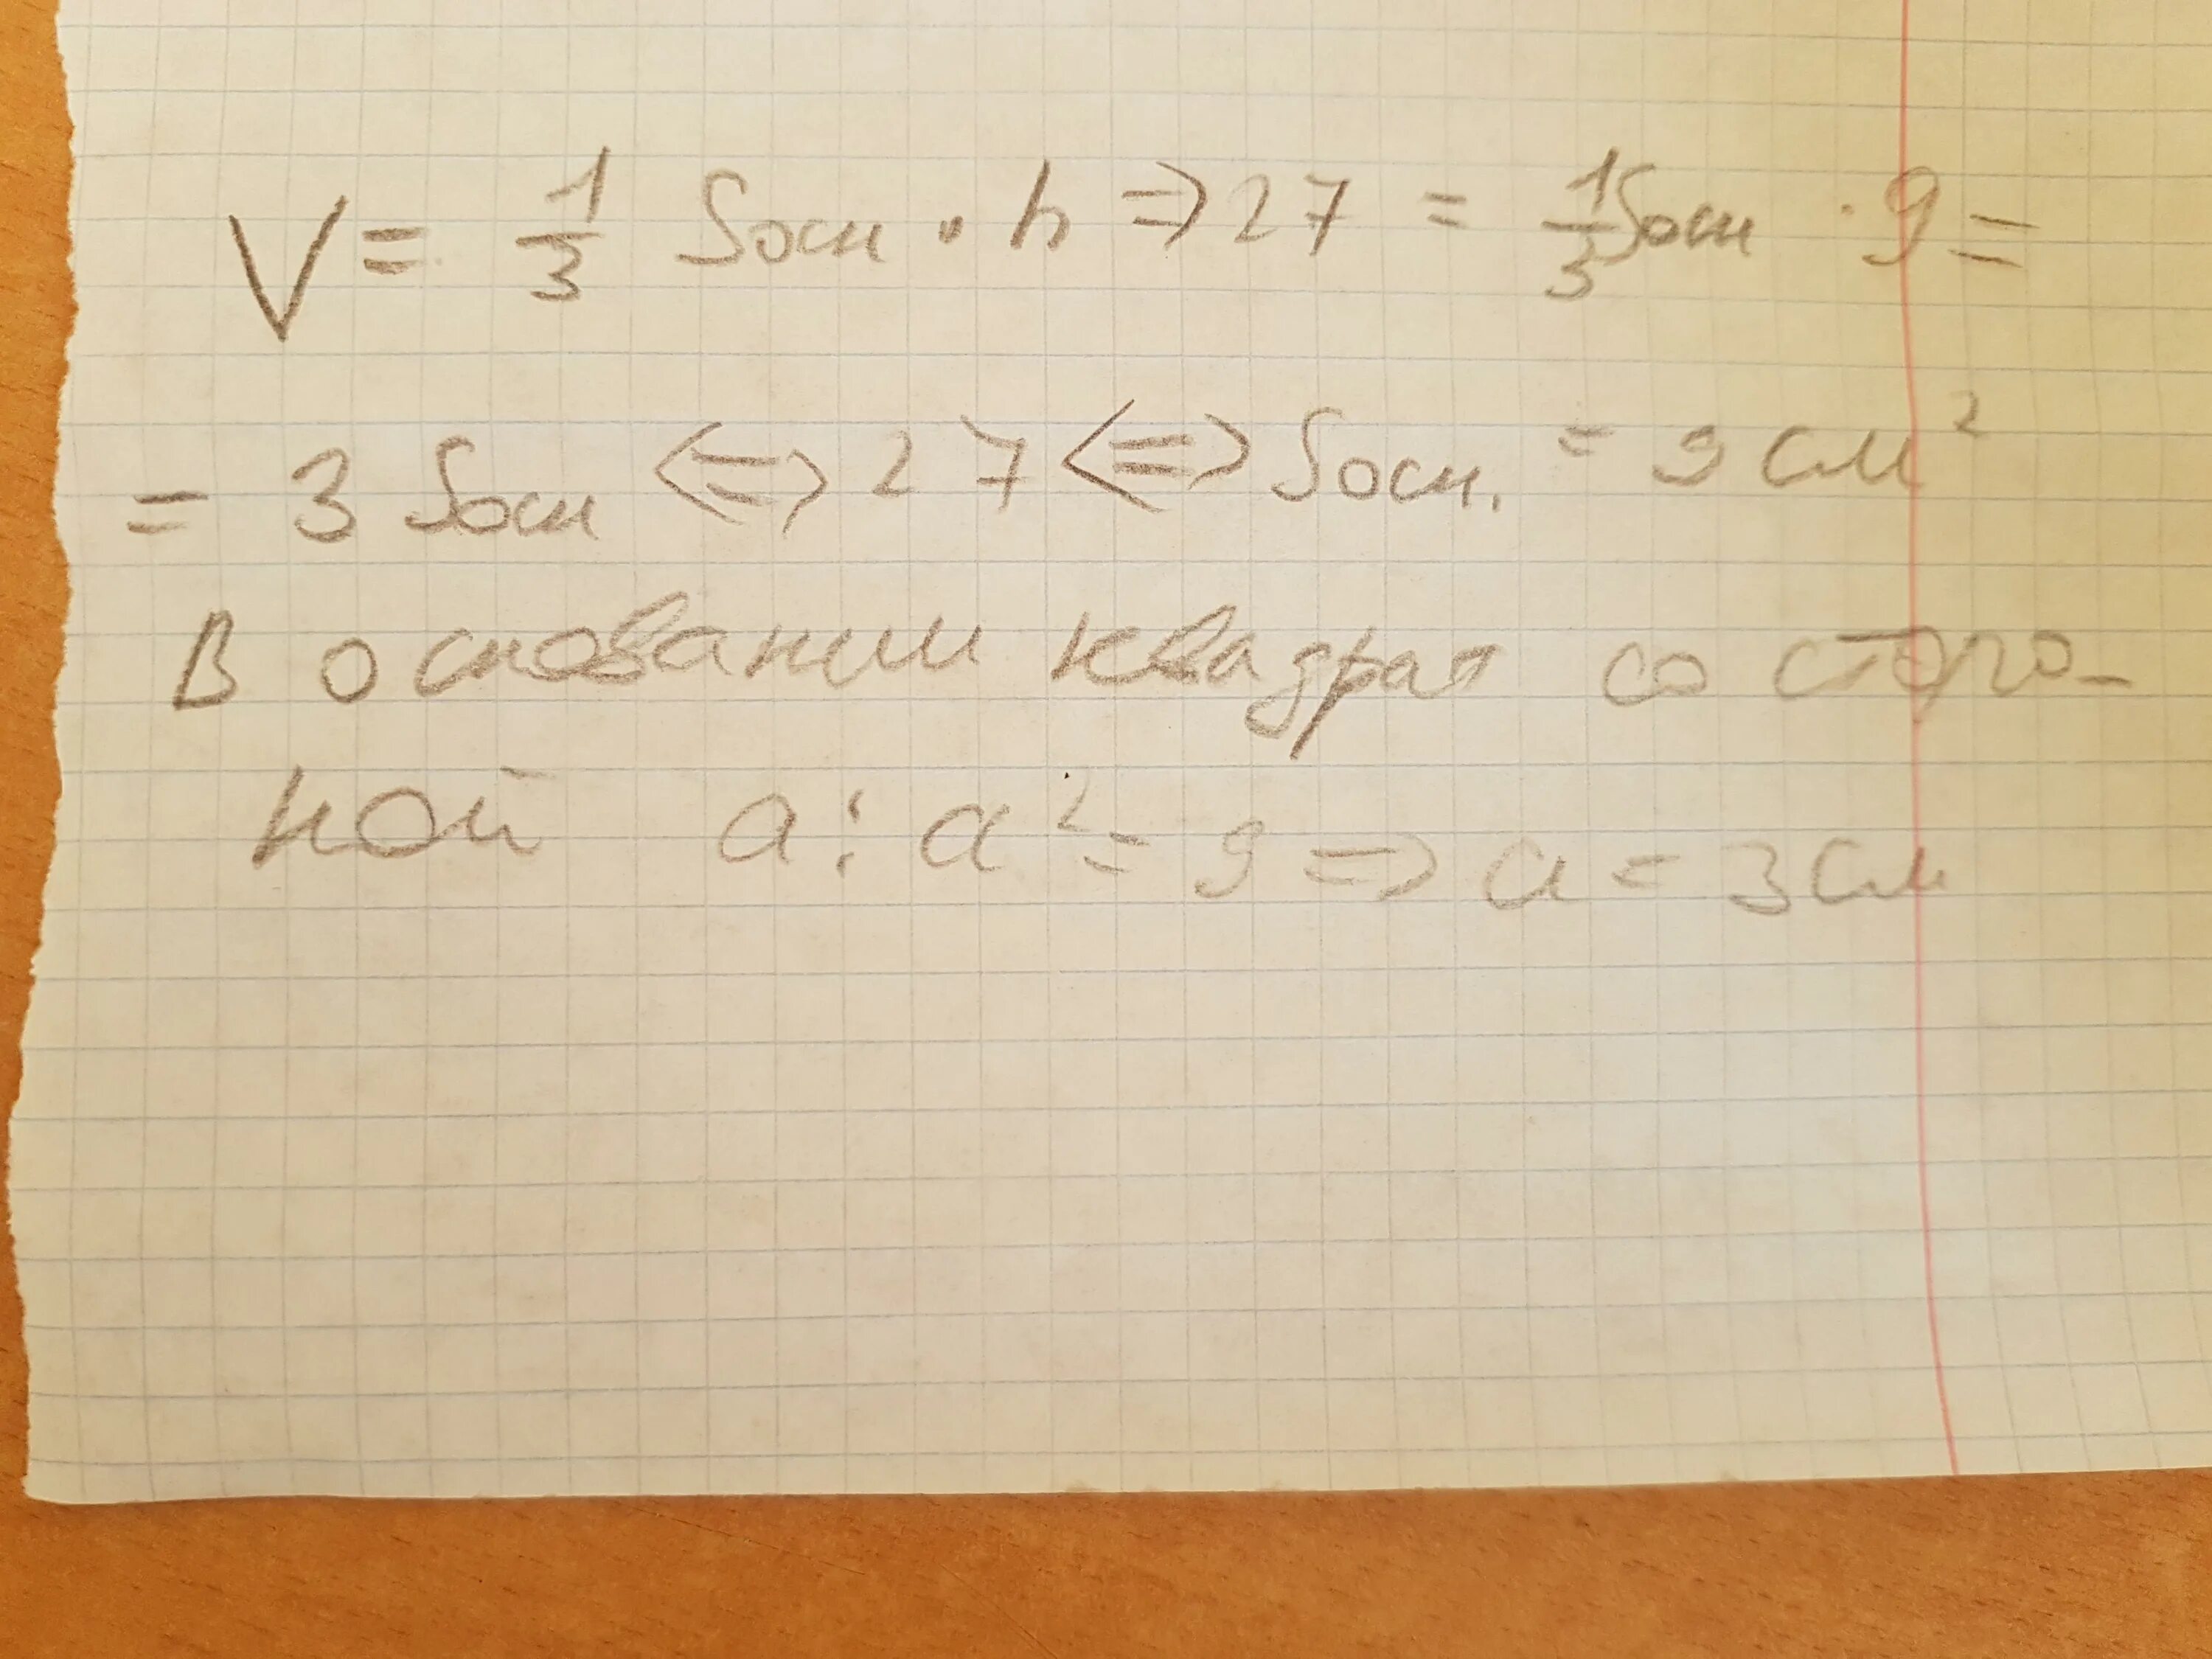 V = 1/3 Sосн · h => 27 = 1/3 Sосн · 9 =
= 3 Sосн <=> 27 <=> Sосн. = 9 см²
В основании квадрат со сторо-
ной a: a² = 9 => a = 3 см